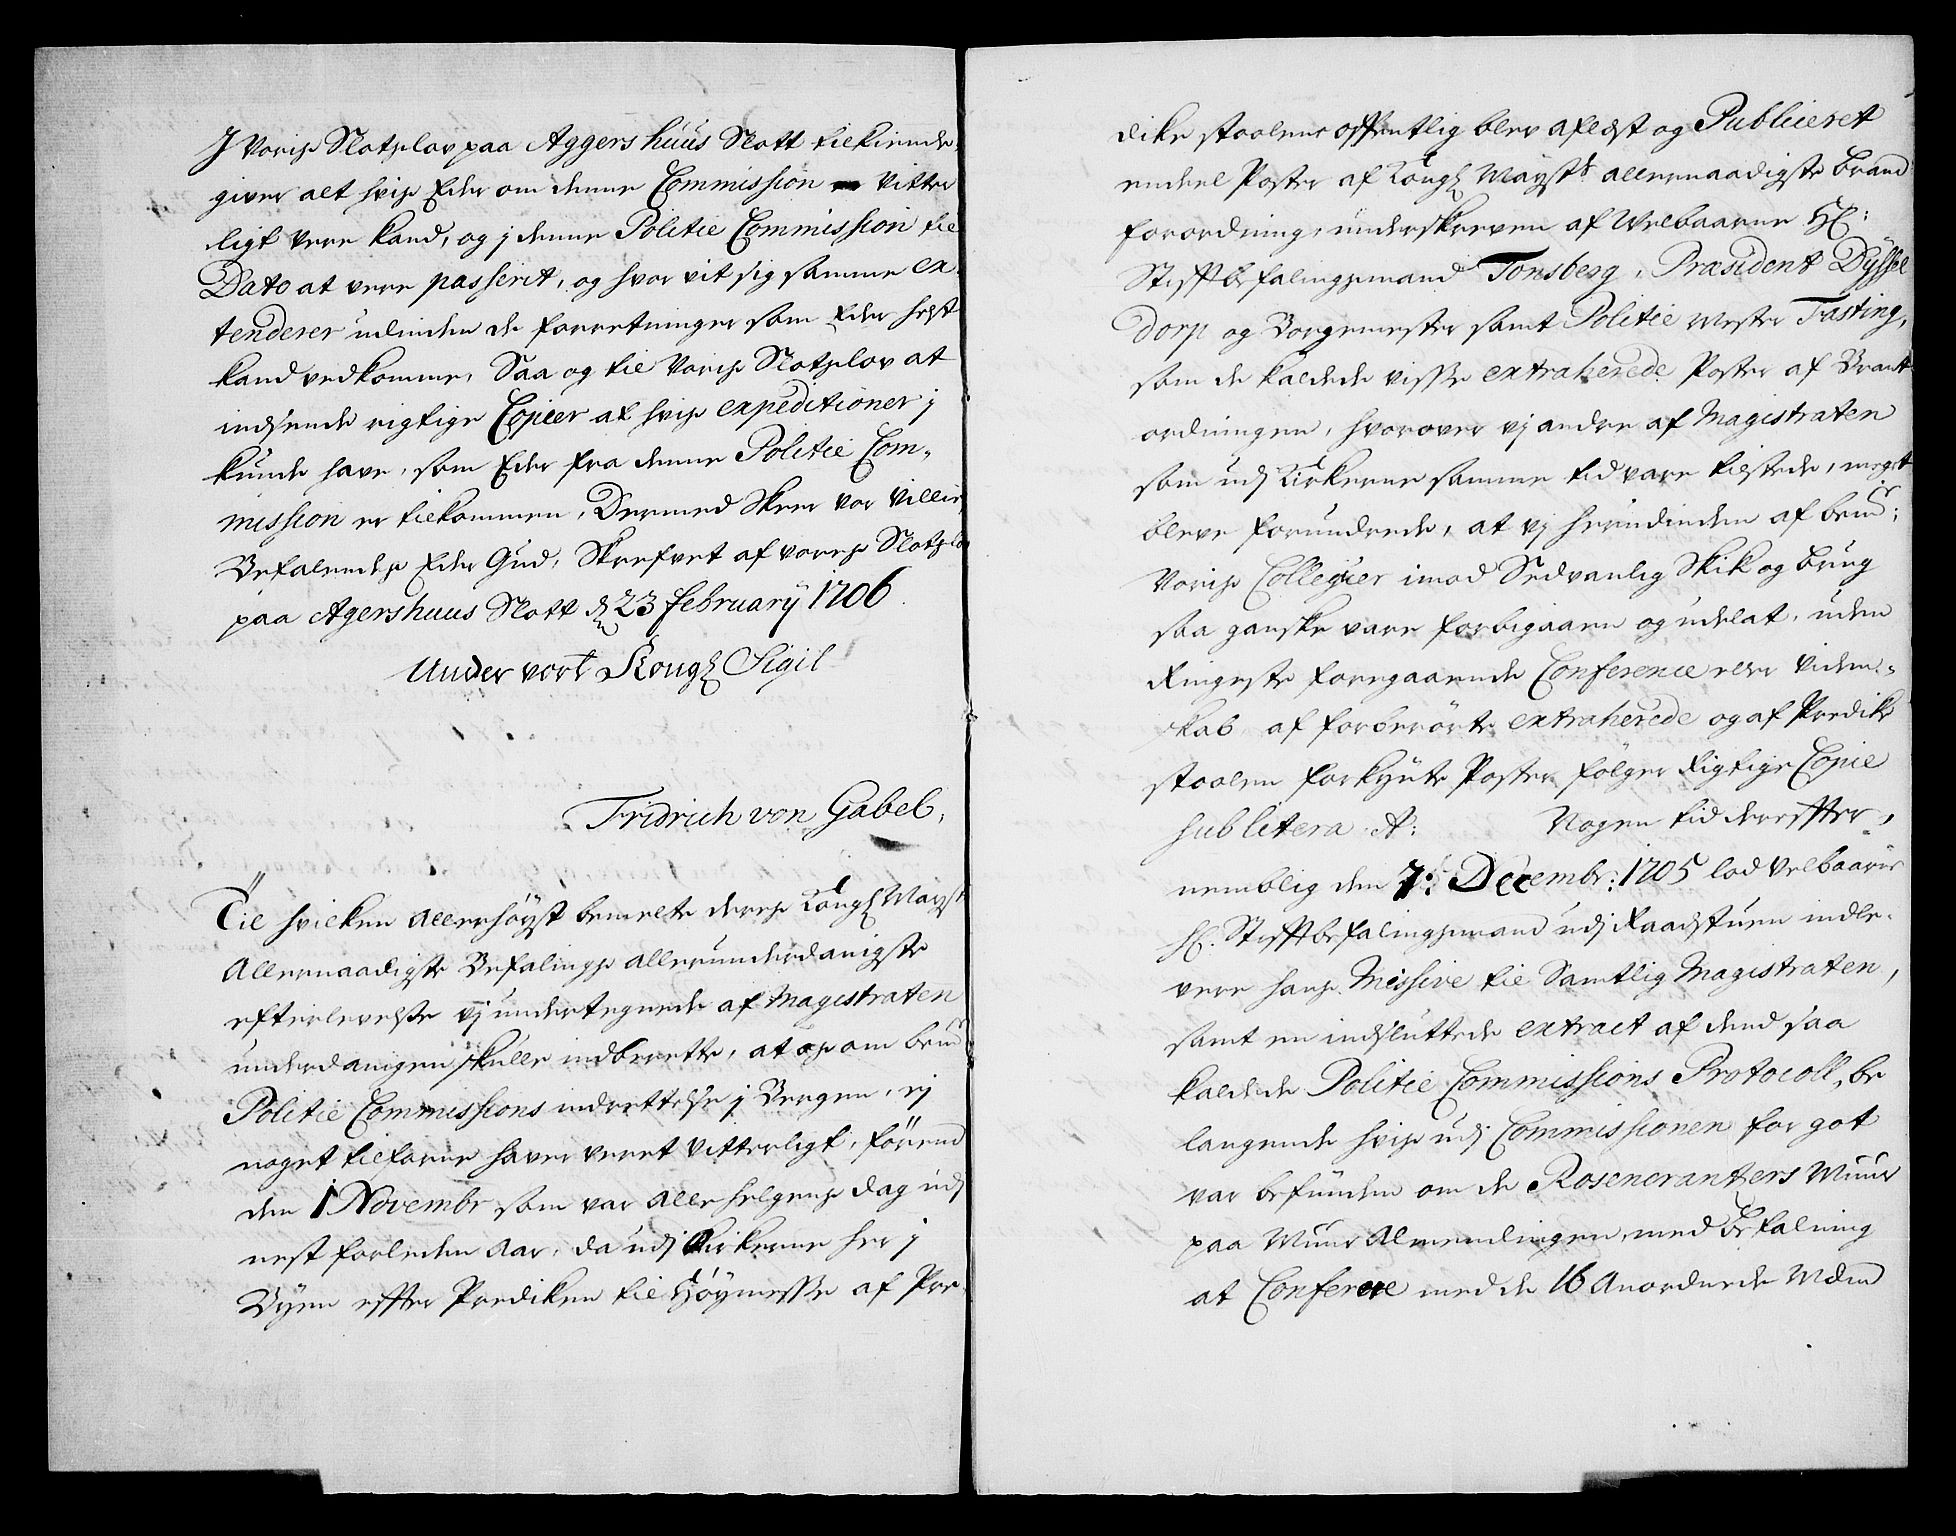 J Voris Slotzlov paa Aggershuus Slott tilkiende
giver alt hvis Eder om denne Commission Vitter
ligt vere kand, og j denne Politie Commission til
Dato at vere passerit, og hvor vit sig samme ex
tenderer udinden de forretninger som Eder helst
kand vedkomme, Saa og til Voris Slotzlov at
indsende rigtige Copier af hvis expeditioner j
kunde have, som Eder fra denne Politie Com-
mission er tilkommen, Dermed skeer vor Villie
Befalendis Eder Gud, Skrefvet af voris Slotzlov
paa Agershuus Slott d 23 February 1706
Under vort Kongl Sigil
Fridrich von Gabel,
Til hvilken allerhöyst bemelte deris Kongl Mayts
Allernaadigste Befalings allerunderdanigste
efterlevelse vj undertegnede af Magistraten
underdanigen skulle indberette, at os om bem
Politie Commissions indrettelse j Bergen, ej
noget tilforne haver veret vitterligt, förend
den 1 Novembr som var alle helgens dag udj
nest forleden Aar, da udj Kirkerne her j
Byen effter Prediken til Höymesse af Pre
dike stoelene offentlig blev aflæst og Publiceret
endeel Poster af Kongl Mayts allernaadigste brand
forordning, underskreven af Welbaarne Hr:
Stifftbefalingsmand Tonsberg, Præsident Dyssel
dorp og Borgemester samt Politie Mester Fasting,
som de kaldede visse extraherede Poster af Brand
ordningen, hvorover vj andre af Magistraten
som udj Kirkerne samme tid vare tilstede, meget
bleve forundrede, at vj herudinden af bem:
Voris Collegier imod Sedvanlig Skik og brug
saa ganske vare forbigaaen og udelat, uden
Ringeste foregaaende Conference eller Viden-
skab af forberörte extraherede og af Predike
stoelen forkynte Poster fölger Rigtige Copie
sub litera A: Nogen tid dereffter,
nemblig den 7: Decembr: 1705 lod velbaarne
Hr. Stifftbefalingsmand udj Raadstuen indle-
vere hans Missive til Samtlig Magistraten,
samt en indsluttede extract af dend saa
kaldede Politie Commissions Protocoll, be
langende hvis udj Commissionen for got
var befunden om de Rosencrantzers Muur
paa Muur Almendingen, med befalning
at Conferere med de 16 Anordnede Mænd